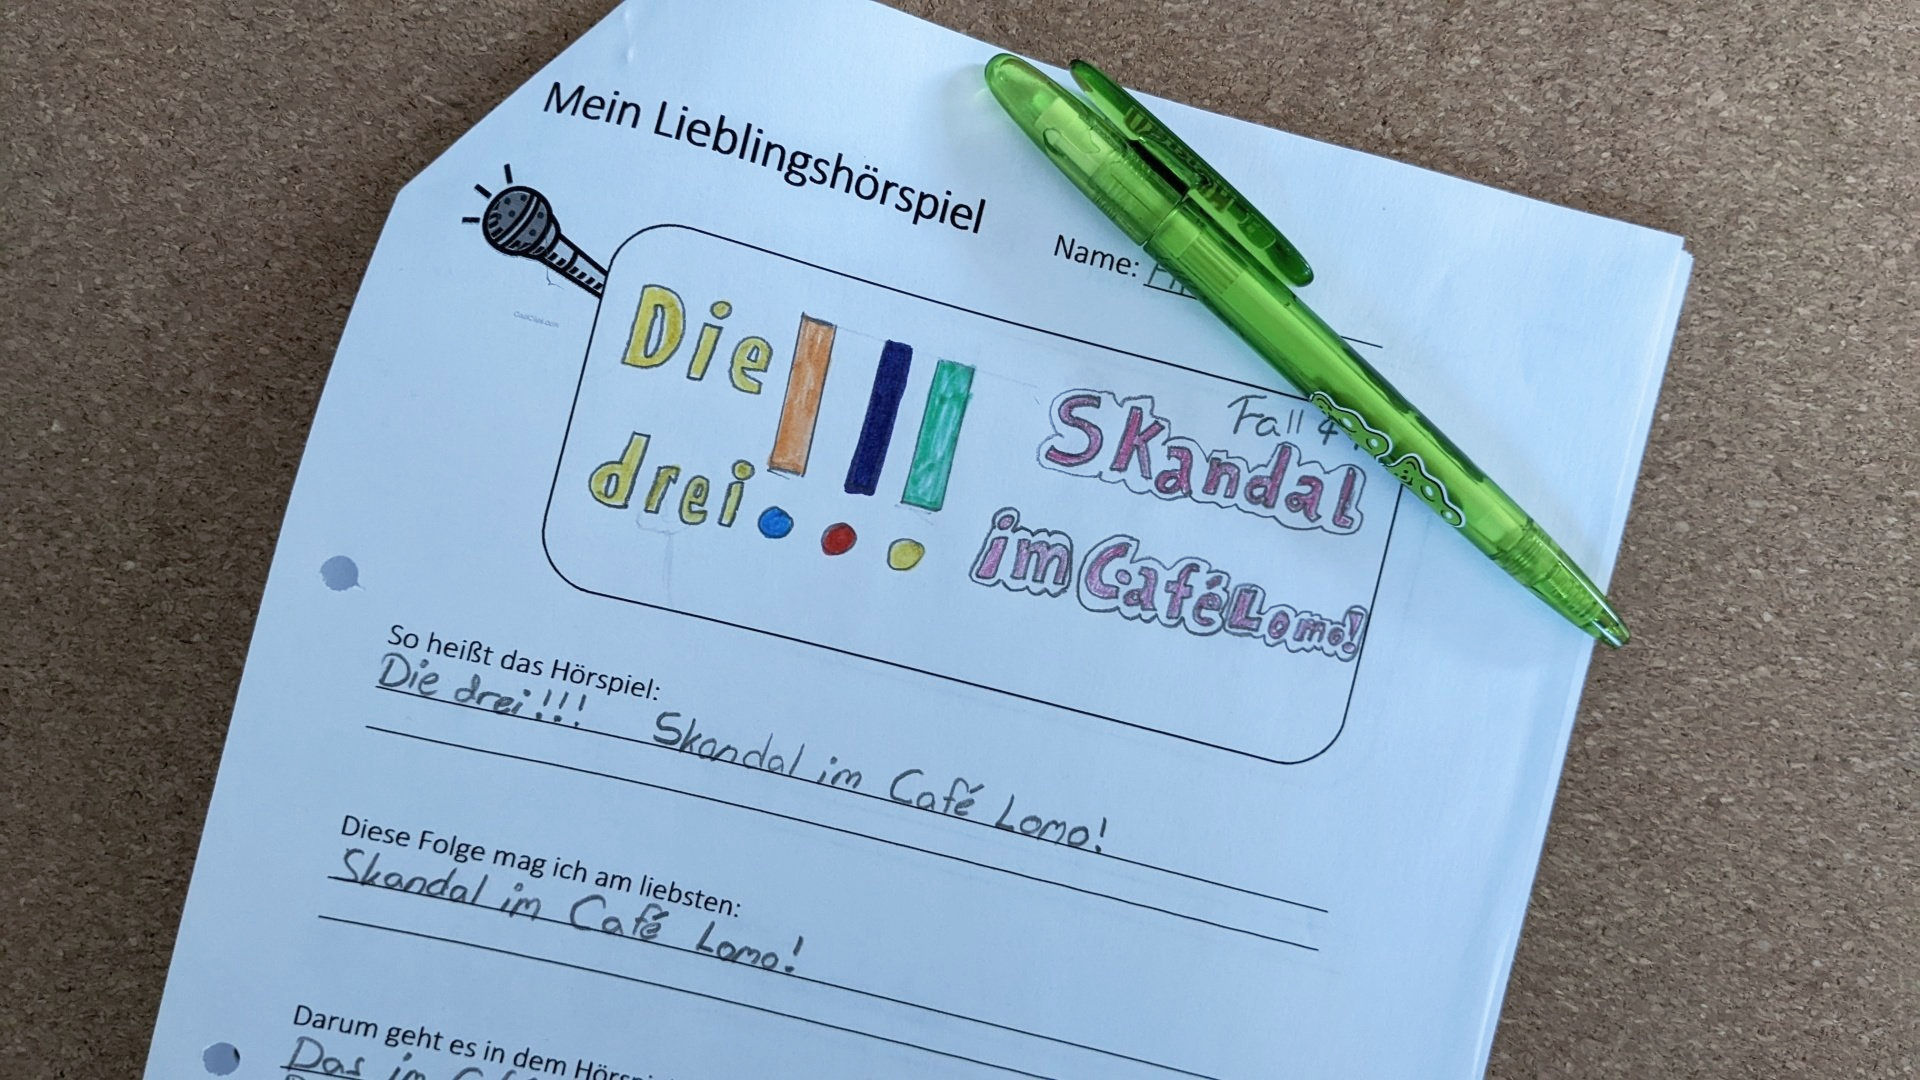 Mein Lieblingshörspiel
Name:
Die !!!
drei
Fall
Skandal
im Café Lomo!
So heißt das Hörspiel:
Die drei!!! Skandal im Café Lomo!
Diese Folge mag ich am liebsten:
Skandal im Café Lomo!
Darum geht es in dem
Das im